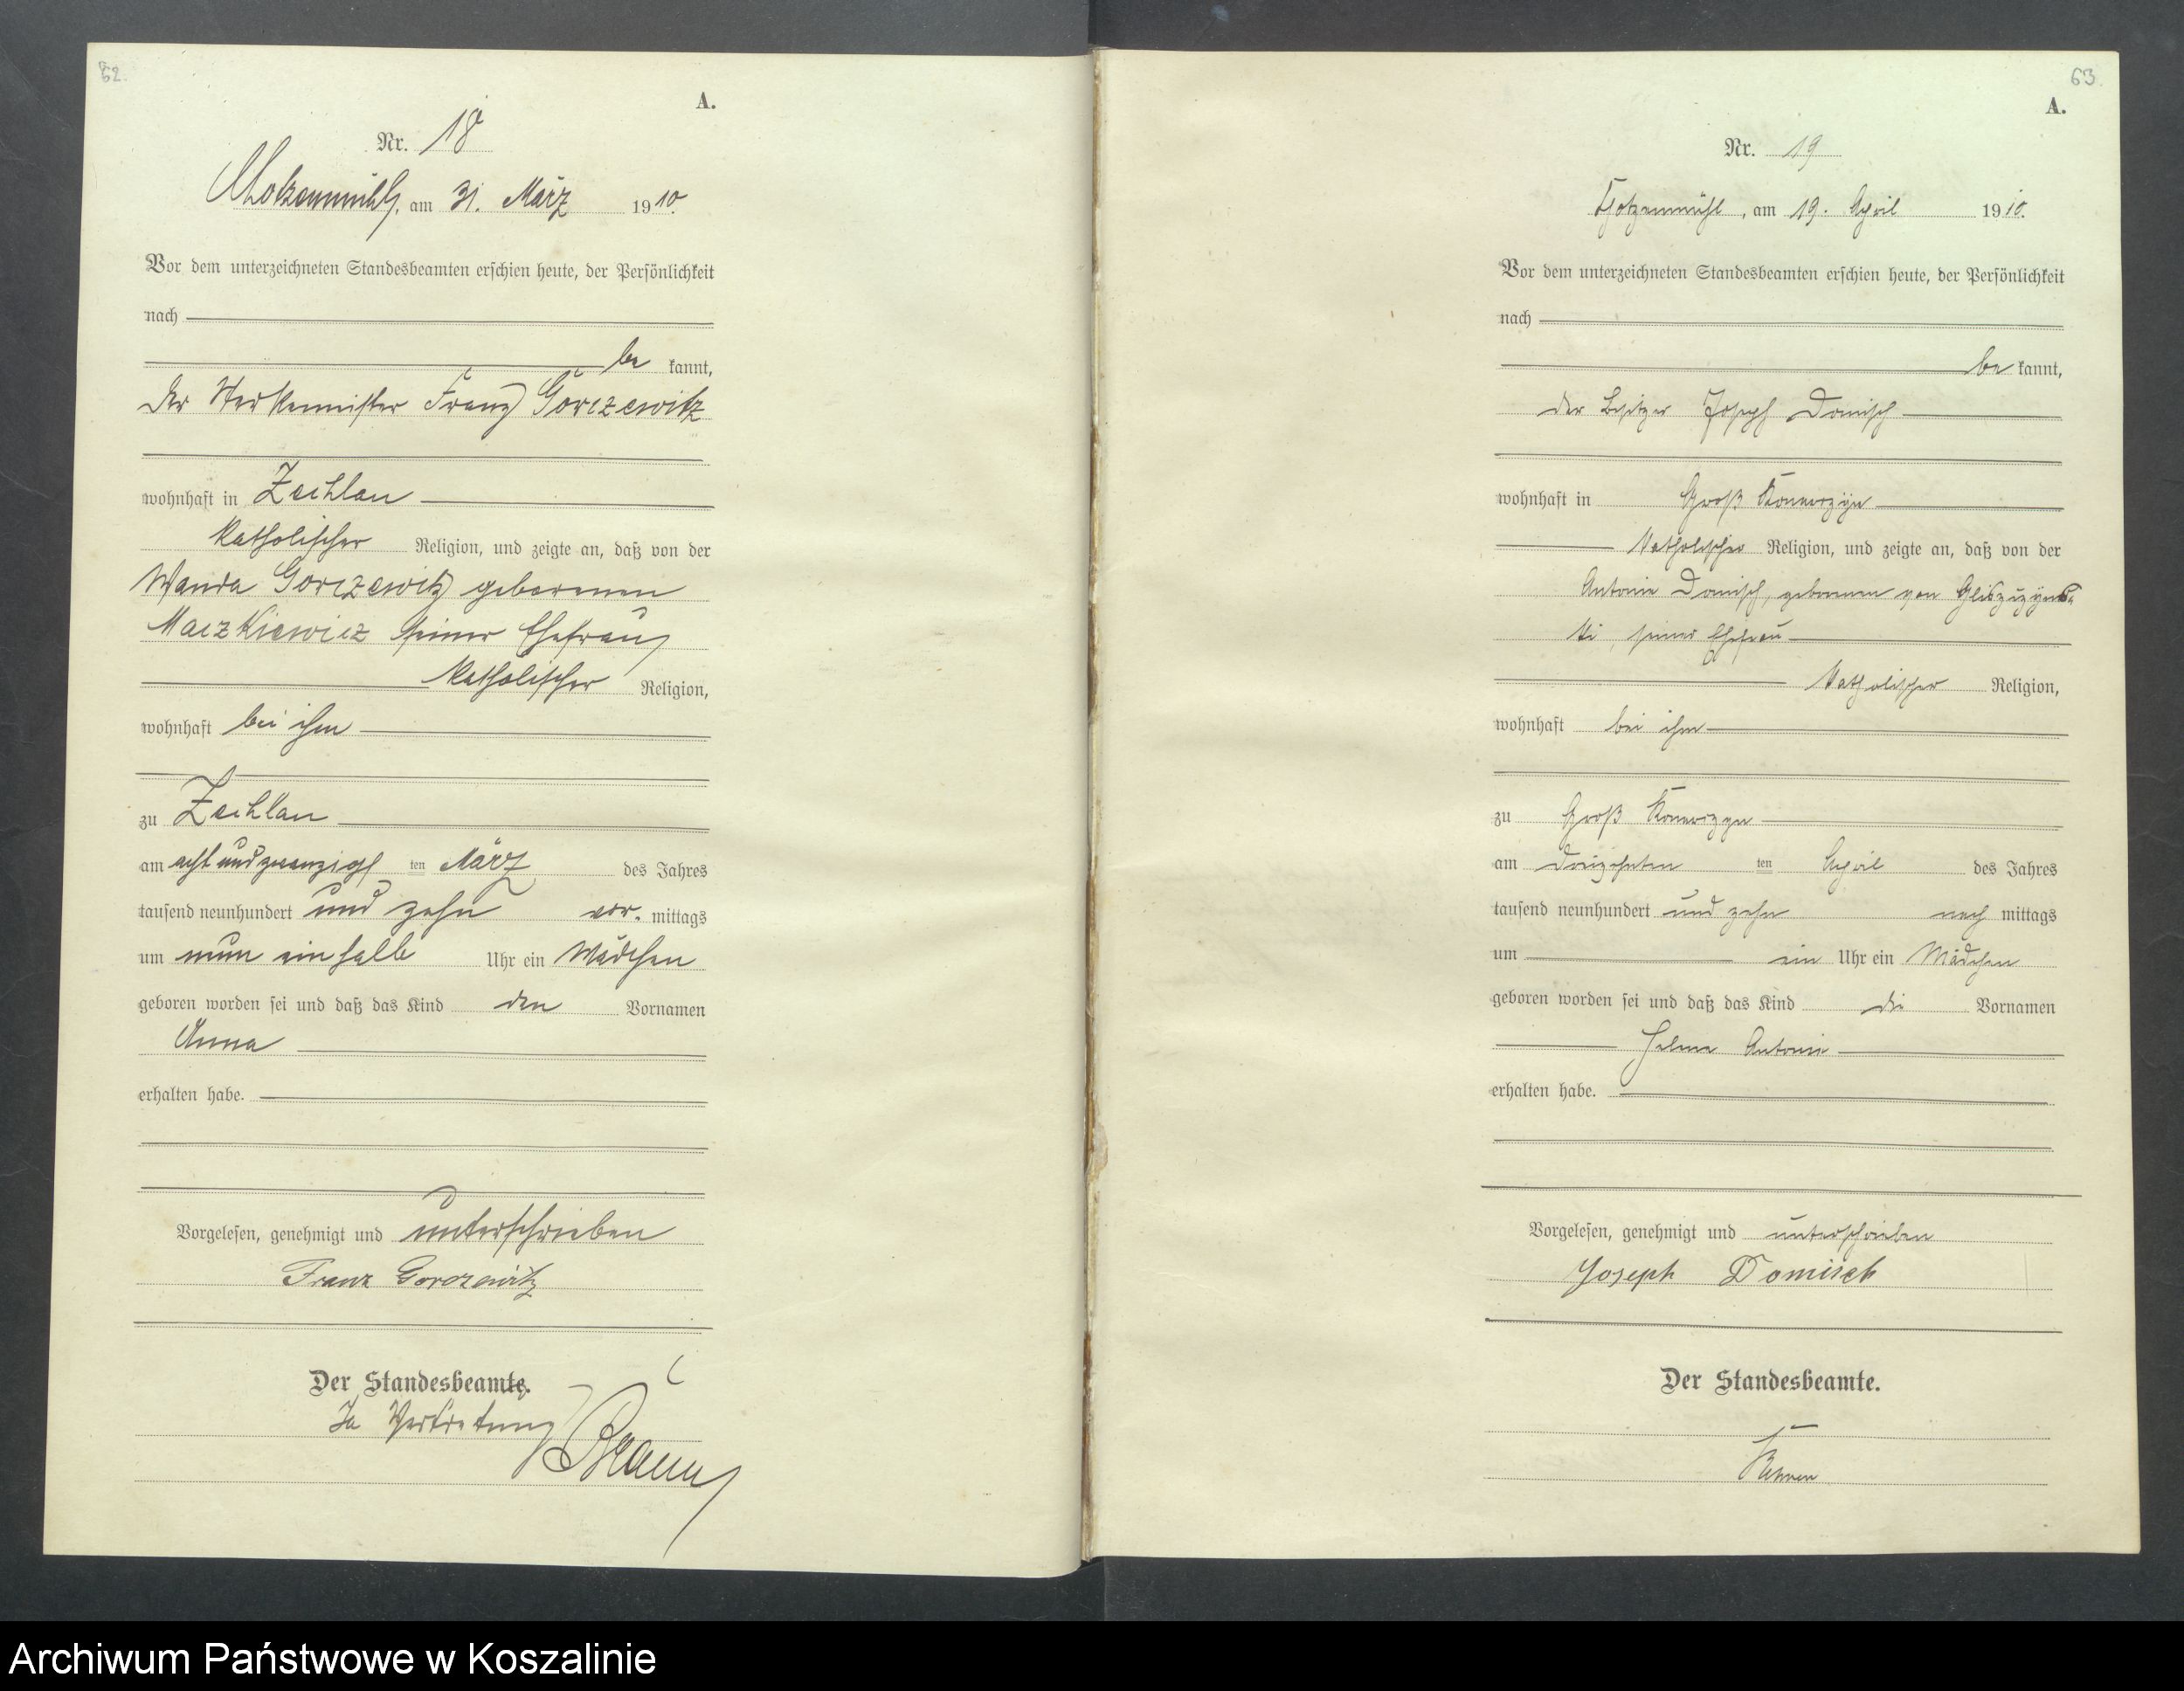 62.
A.
Nr. 18
Chotzenmühl, am 31. März 1910.
Vor dem unterzeichneten Standesbeamten erschien heute, der Persönlichkeit
nach
be kannt,
der Werkmeister Franz Gorczewitz
wohnhaft in Zechlau
katholischer Religion, und zeigte an, daß von der
Wanda Gorczewitz geborenen
Maczkiewicz seiner Ehefrau,
katholischer Religion,
wohnhaft bei ihm
zu Zechlau
am acht und zwanzigsten März des Jahres
tausend neunhundert und zehn vor mittags
um neun einhalb Uhr ein Mädchen
geboren worden sei und daß das Kind den Vornamen
Anna
erhalten habe.
Vorgelesen, genehmigt und unterschrieben
Franz Gorczewitz
Der Standesbeamte.
In Vertretung
63.
A.
Nr. 19
Chotzenmühl, am 19. April 1910.
Vor dem unterzeichneten Standesbeamten erschien heute, der Persönlichkeit
nach
be kannt,
der Besitzer Joseph Domisch
wohnhaft in Groß Konarzyn
katholischer Religion, und zeigte an, daß von der
Antonie Domisch, geborenen von Gliszczyns-
ki, seiner Ehefrau
katholischer Religion,
wohnhaft bei ihm
zu Groß Konarzyn
am dreizehnten ten April des Jahres
tausend neunhundert und zehn nach mittags
um ein Uhr ein Mädchen
geboren worden sei und daß das Kind die Vornamen
Antonie
erhalten habe.
Vorgelesen, genehmigt und unterschrieben
Joseph Domisch
Der Standesbeamte.
Archiwum Państwowe w Koszalinie